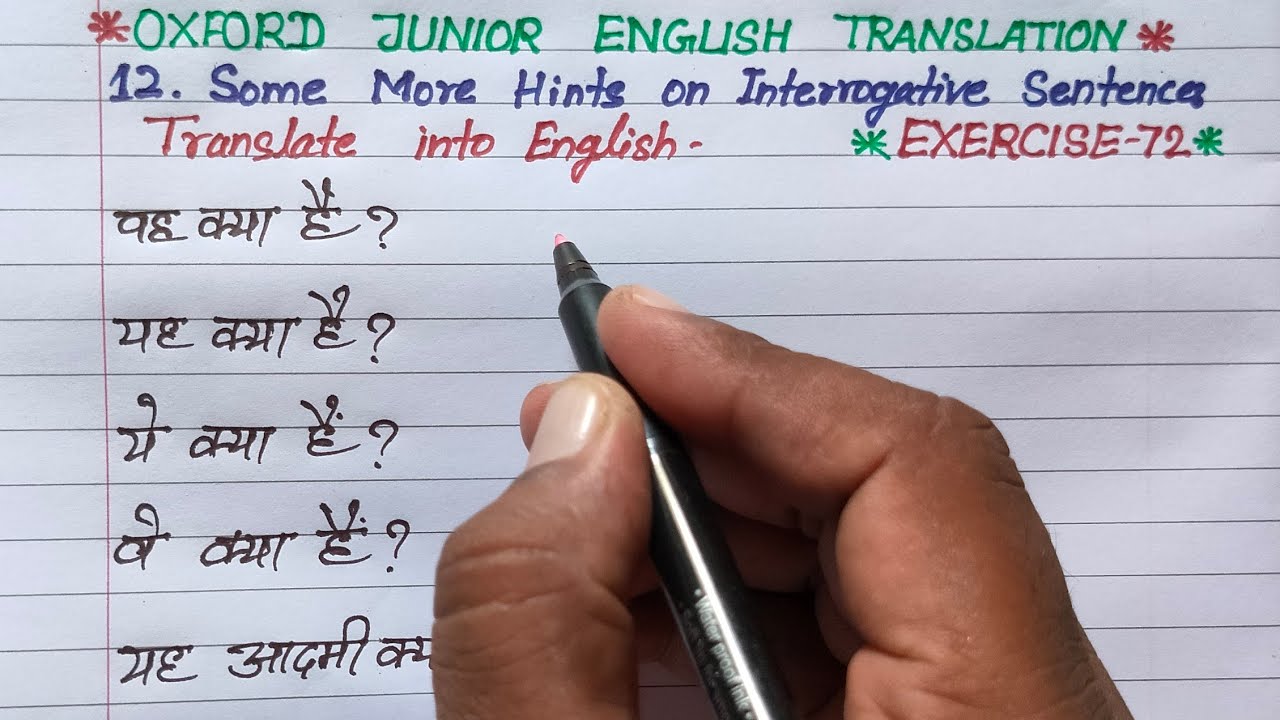 *OXFORD JUNIOR ENGLISH TRANSLATION*
12. Some More Hints on Interrogative Sentences
Translate into English- *EXERCISE-72*
वह क्या है?
यह क्या है?
ये क्या हैं?
वे क्या हैं?
यह आदमी
Water proof Ink